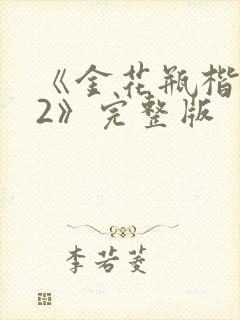 《金花瓶楷
2》完整版
李若菱